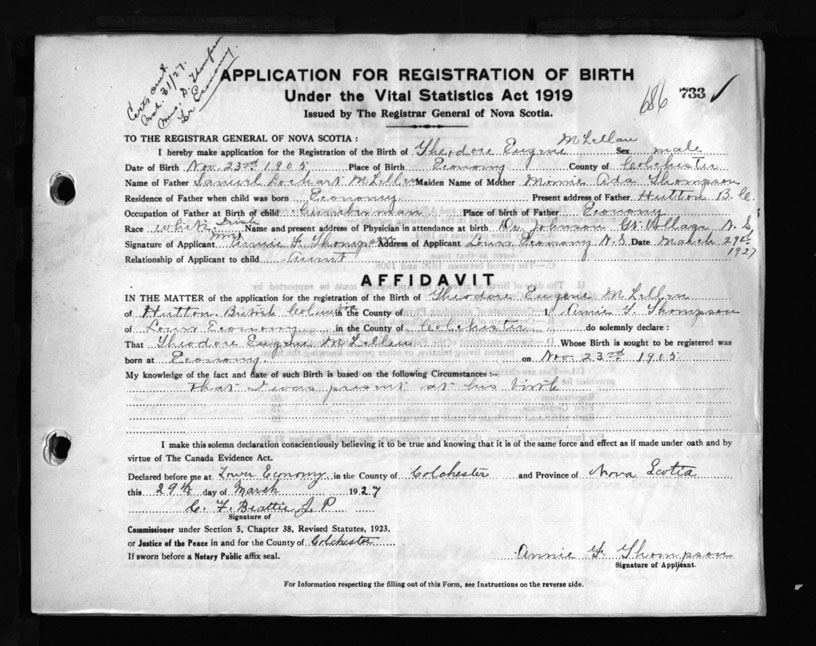 Certs sent
Mch 31/27.
Mrs. A. Thompson
Lr Economy.
APPLICATION FOR REGISTRATION OF BIRTH
Under the Vital Statistics Act 1919
Issued by The Registrar General of Nova Scotia.
686 733 ✓
TO THE REGISTRAR GENERAL OF NOVA SCOTIA :
I hereby make application for the Registration of the Birth of Theodore Eugene McLellan Sex male
Date of Birth Nov 23rd 1905 Place of Birth Economy County of Colchester
Name of Father Samuel Lockart McLellan Maiden Name of Mother Ada Thompson
Residence of Father when child was born Economy Present address of Father Hutton B.C.
Occupation of Father at Birth of child Lumberman Place of birth of Father Economy
Race white Irish Name and present address of Physician in attendance at birth Dr Johnson Gt Village N.S.
Signature of Applicant Mrs Annie F. Thompson Address of Applicant Lower Economy N.S Date March 29th 1927
Relationship of Applicant to child Aunt
AFFIDAVIT
IN THE MATTER of the application for the registration of the Birth of Theodore Eugene McLellan
of Hutton British Columbia in the County of I Annie F. Thompson
of Lower Economy in the County of Colchester do solemnly declare :
That Theodore Eugene McLellan Whose Birth is sought to be registered was
born at Economy. on Nov 23rd 1905
My knowledge of the fact and date of such Birth is based on the following Circumstances :-
That I was present at his birth
I make this solemn declaration conscientiously believing it to be true and knowing that it is of the same force and effect as if made under oath and by
virtue of The Canada Evidence Act.
Declared before me at Lower Economy in the County of Colchester and Province of Nova Scotia
this 29th day of March 1927
C. F. Beattie J.P
Signature of
Commissioner under Section 5, Chapter 38, Revised Statutes, 1923,
or Justice of the Peace in and for the County of Colchester
If sworn before a Notary Public affix seal.
Annie F. Thompson
Signature of Applicant.
For Information respecting the filling out of this Form, see Instructions on the reverse side.